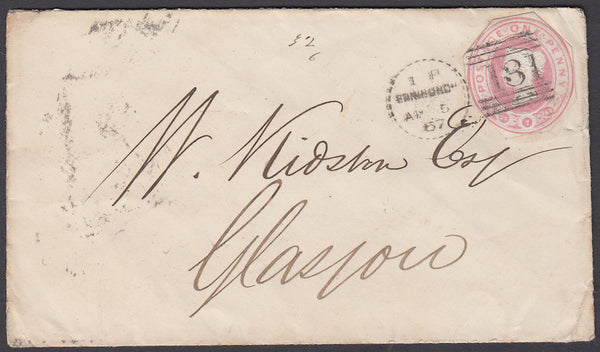 32
6
POSTAGE ONE PENNY
131
1 P
EDINBURGH
AP 5
67
W. Kidston Esq
Glasgow